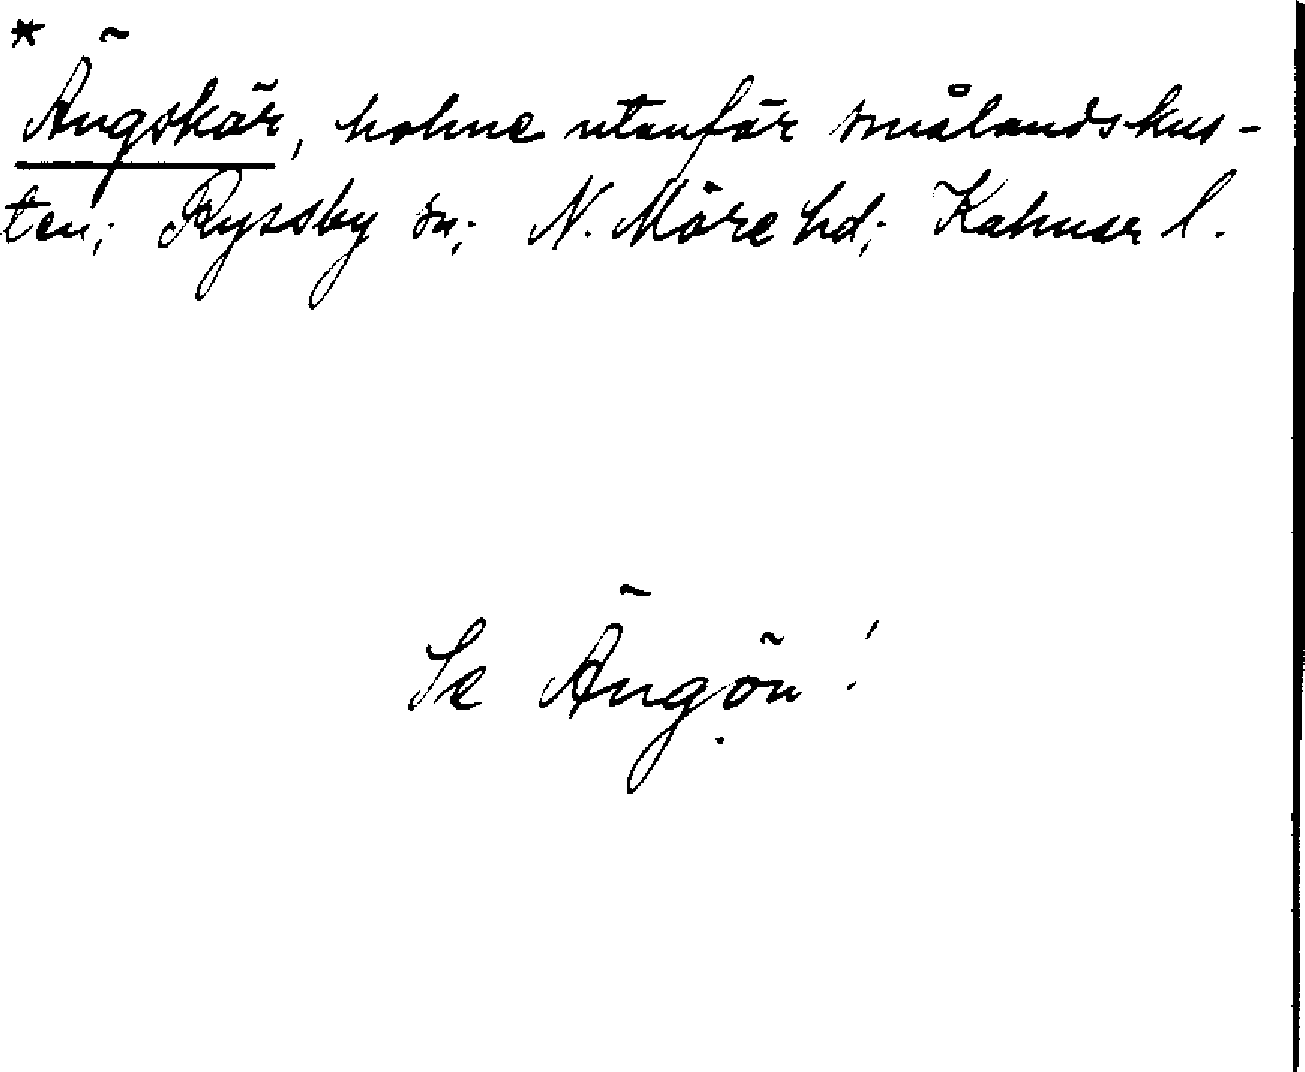 * Ängskär, holme utanför smålandskus-
ten; Ryssby sn; N. Möre hd; Kalmar l.
Se Ängön!